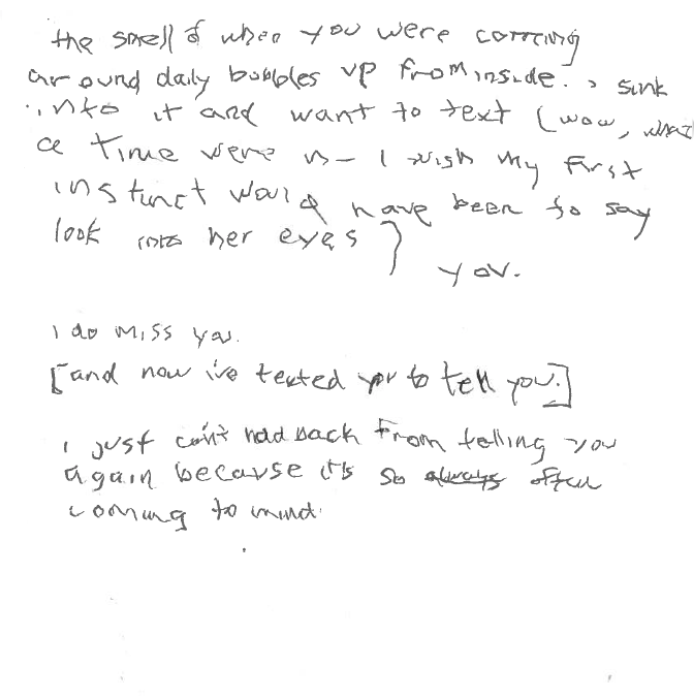 the smell of when you were coming
around daily bubbles up from inside. i sink
into it and want to text (wow, what
a time we're in - I wish my first
instinct would have been to say
look into her eyes)
you.
i do miss you.
[and now i've texted you to tell you.]
i just can't hold back from telling you
again because it's so always often
coming to mind.